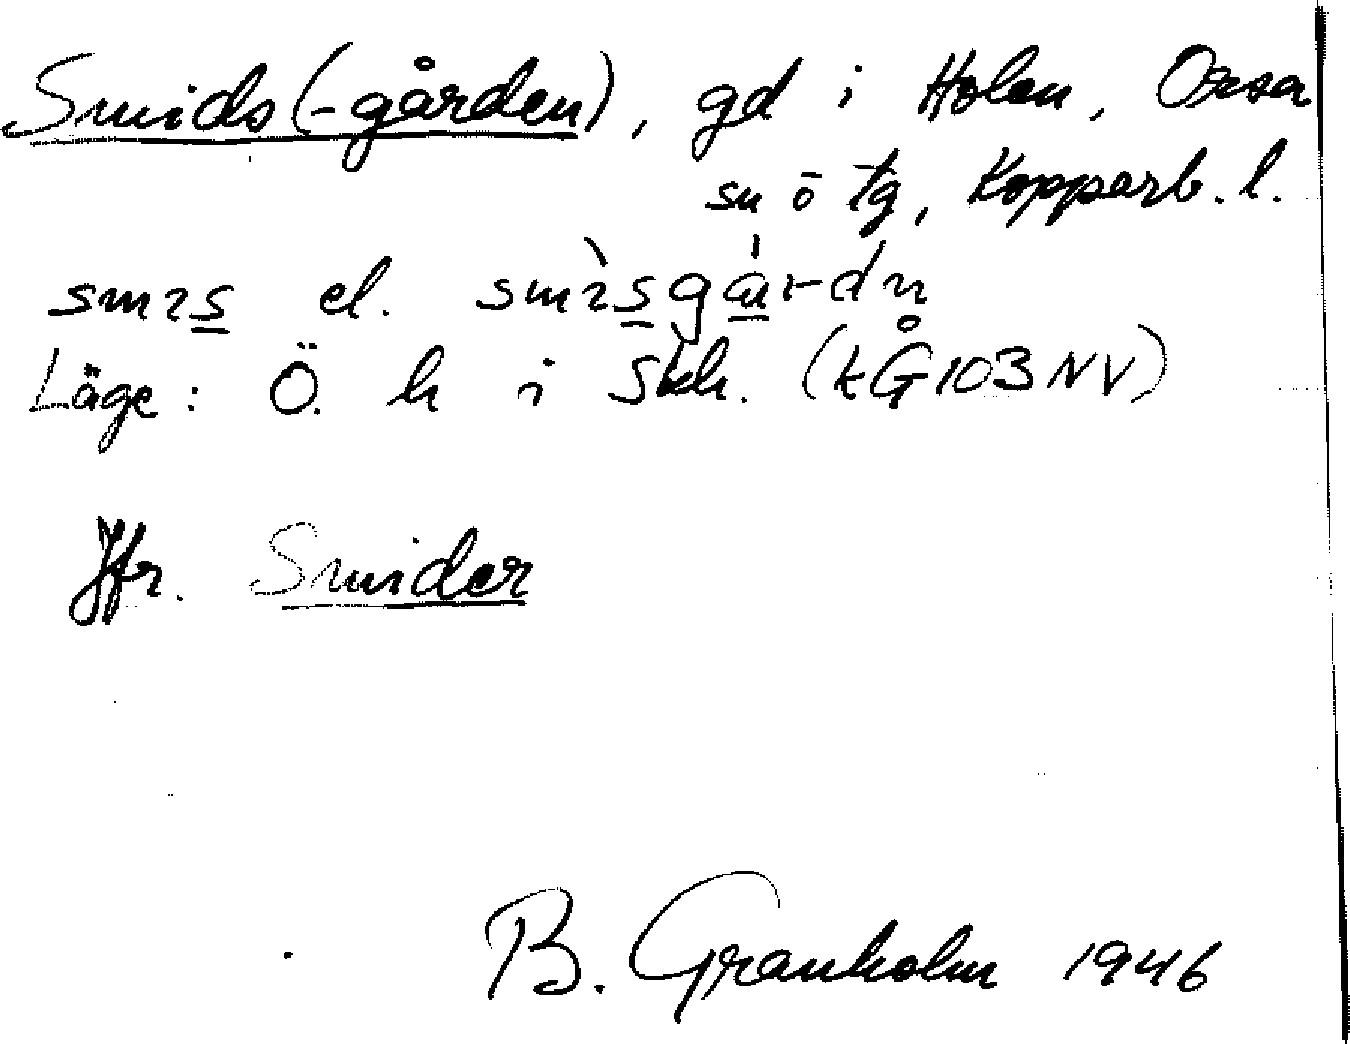 Smids(-gården), gd i Holen, Orsa
sn o tg, Kopparb. l.
smıs el. smìsgàrdn
Läge: Ö. h i Skh. (kG103NV)
Jfr. Smider
B. Granholm 1946